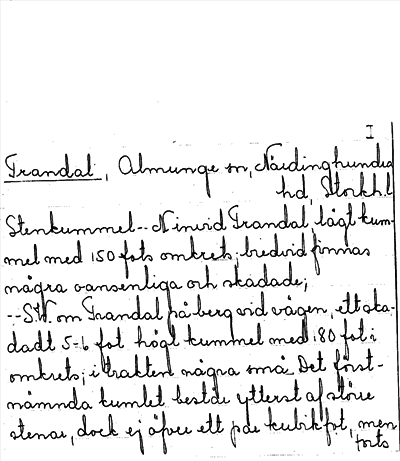 I
Trandal, Almunge sn, Närdinghundra
hd, Stockhl
Stenkummel -- N invid Trandal lågt kum-
mel med 150 fots omkrets; bredvid finnas
några oansenliga och skadade;
-- S.W. om Trandal på berg vid vägen, ett ska-
dadt 5-6 fot högt kummel med 180 fot i
omkrets; i trakten några små. Det först-
nämnda kumlet består ytterst af större
stenar, dock ej äfver ett par kubikfot, men
forts